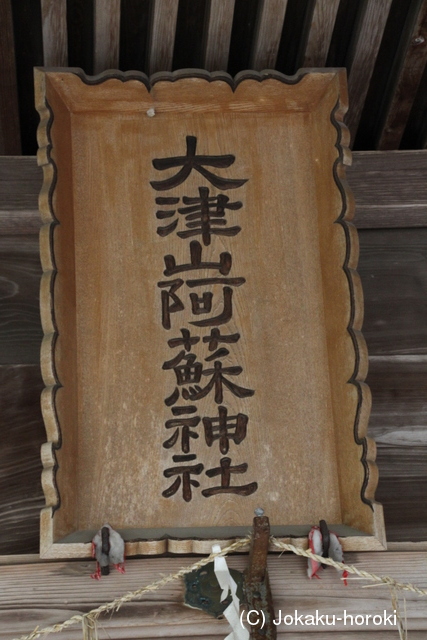 大津山阿蘇神社
(C) Jokaku-horoki